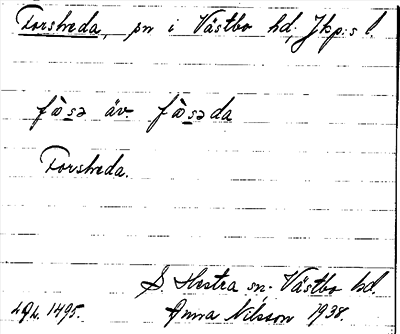 Forsheda, sn i Västbo hd, Jkp:s l.
fåsə äv. fåsəda
Forsheda.
S. Hestra sn. Västbo hd.
Anna Nilsson 1938.
1495.